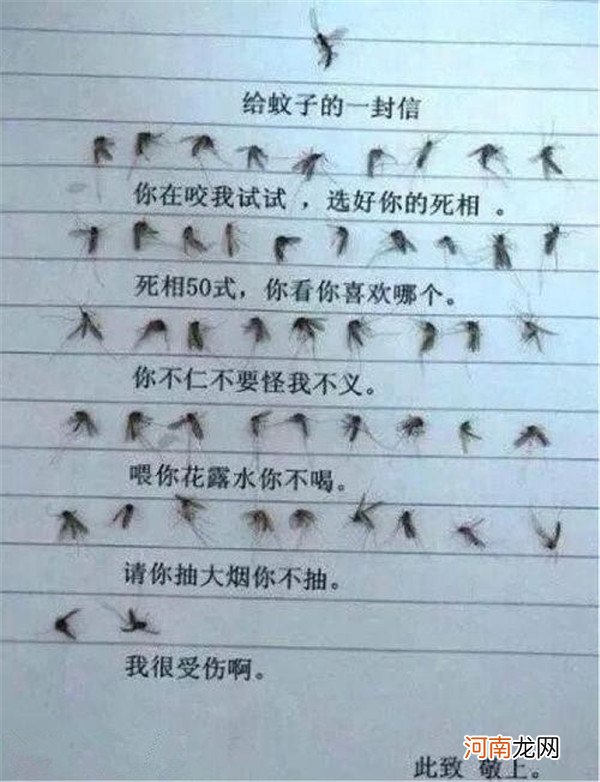 给蚊子的一封信
你在咬我试试 ，选好你的死相 。
死相50式，你看你喜欢哪个。
你不仁不要怪我不义。
喂你花露水你不喝。
请你抽大烟你不抽。
我很受伤啊。
此致 敬上。
河南龙网